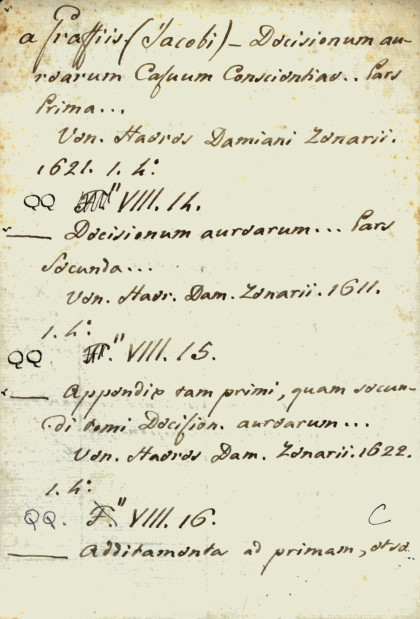 a Graffiis (Jacobi) – Decisionum au-
rearum Casuum Conscientiae.. Pars
Prima...
Ven. Haeres Damiani Zenarii.
1621. 1. 4:
QQ VIII. 14.
— Decisionum aurearum... Pars
Secunda...
Ven. Haer. Dam. Zenarii. 1611.
1. 4:
QQ VIII. 15.
— Appendix tam primi, quam secun-
di tomi Decision. aurearum...
Ven. Haeres Dam. Zenarii. 1622.
1. 4:
QQ. F." VIII. 16. C
— Additamenta ad primam, et se